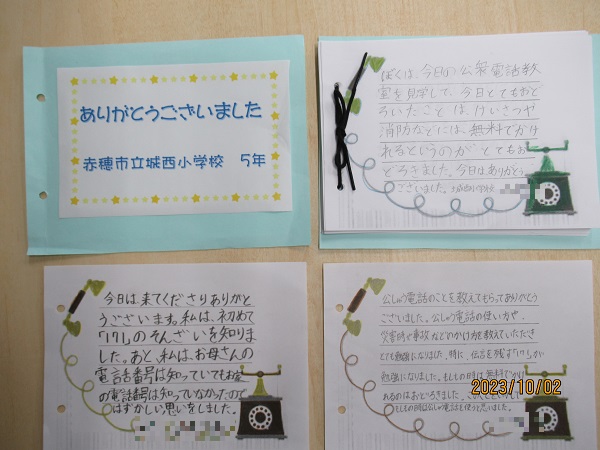 ありがとうございました
赤穂市立城西小学校 5年
ぼくは、今日の公衆電話教
室を見学して、今日とてもおど
ろいたことは、けいさつや
消防などには、無料でかけ
れるというのがとてもお
どろきました。今日はありがとう
ございました。
今日は来てくださりありがと
うございます。私は、初めて
「171」のそんざいを知りま
した。あと、私は、お母さんの
電話番号は知っていてもお
の電話番号は知っていなかったので
はずかしい思いをしました。
公しゅう電話のことを教えてもらってありがとう
ございました。公しゅう電話の使い方や、
災害時や事故などのかけ方を教えていただき
とても勉強になりました。特に、伝言を残す「171」が
勉強になりました。もしもの時は無料でかけ
れるのはおどろきました。
もしもの時は公しゅう電話を使うと思いました。
2023/10/02